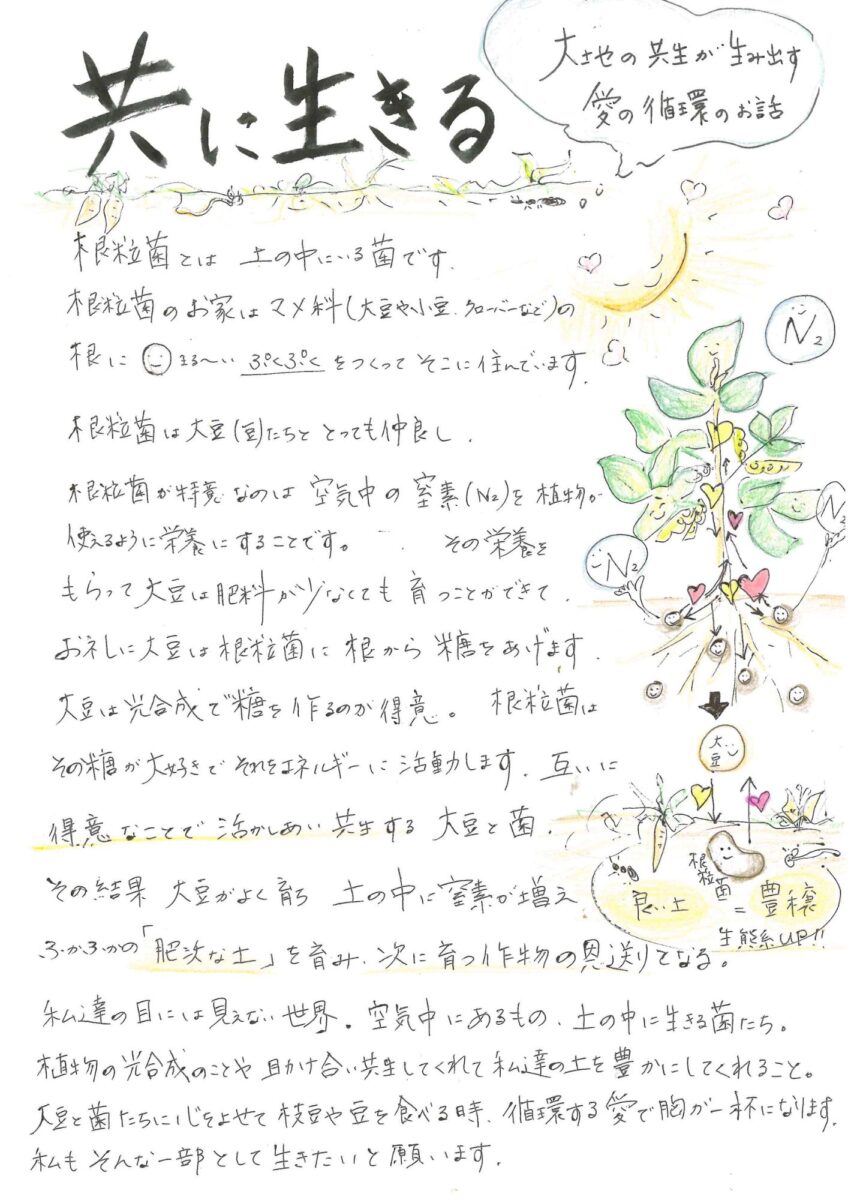 共に生きる
大地の共生が生み出す
愛の循環のお話
根粒菌とは 土の中にいる菌です.
根粒菌のお家はマメ科(大豆や小豆.クローバーなど)の
根に まる〜い ぷくぷく をつくって そこに住んでいます.
根粒菌は大豆(豆)たちと とっても仲良し.
根粒菌が得意なのは 空気中の 窒素(N2)を 植物が
使えるように栄養にすることです。 その栄養を
もらって 大豆は肥料が少なくても 育つことができて.
お礼しに大豆は根粒菌に 根から 糖をあげます.
大豆は光合成で糖を作るのが得意。 根粒菌は
その糖が大好きで それをエネルギーに活動します. 互いに
得意なことで 活かしあい 共生する 大豆と菌.
その結果 大豆がよく育ち 土の中に窒素が増え
ふかふかの「肥沃な土」を育み.次に育つ作物の恩送りとなる。
私達の目には見えない世界. 空気中にあるもの. 土の中に生きる菌たち。
植物の光合成のことや 助け合い共生してくれて 私達の土を豊かにしてくれること。
大豆と菌たちに心をよせて 枝豆や豆を食べる時. 循環する愛で胸が一杯になります.
私も そんな一部として 生きたいと 願います.
N2
N2
N2
大豆
根粒菌
良い土 = 豊穣
生態系UP!!